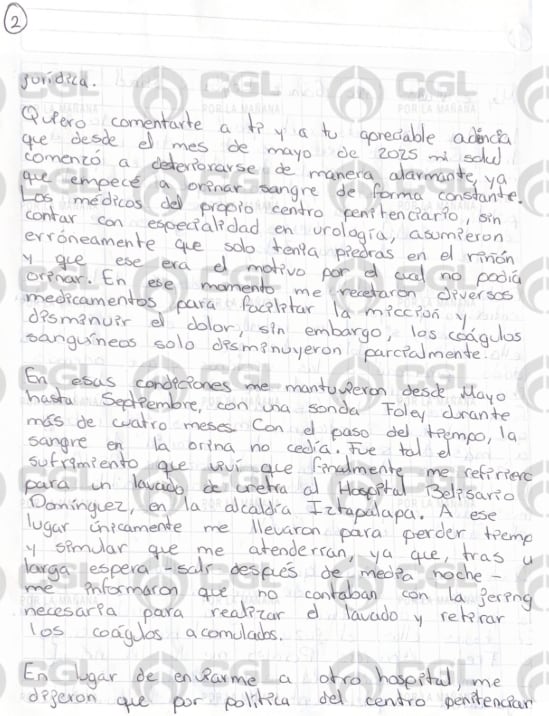 2
jurídica.
Quiero comentarte a ti y a tu apreciable adiencia
que desde el mes de mayo de 2025 mi salud
comenzó a deteriorarse de manera alarmante, ya
que empecé a orinar sangre de forma constante.
Los médicos del propio centro penitenciario, sin
contar con especialidad en urología, asumieron
erróneamente que solo tenía piedras en el riñón
y que ese era el motivo por el cual no podía
orinar. En ese momento me recetaron diversos
medicamentos para facilitar la micción y
disminuir el dolor, sin embargo, los coágulos
sanguíneos solo disminuyeron parcialmente.
En esas condiciones me mantuvieron desde Mayo
hasta Septiembre, con una sonda Foley durante
más de cuatro meses. Con el paso del tiempo, la
sangre en la orina no cedía. Fue tal el
sufrimiento que viví que finalmente me refirierc
para un lavado de uretra al Hospital Belisario
Domínguez, en la alcaldía Iztapalapa. A ese
lugar únicamente me llevaron para perder tiemp
y simular que me atenderían, ya que, tras u
larga espera - salí después de media noche -
me informaron que no contaban con la jering
necesaria para realizar el lavado y retirar
los coágulos acomulados.
En lugar de enviarme a otro hospital, me
dijeron que por política del centro penitenciar
CGL
POR LA MAÑANA